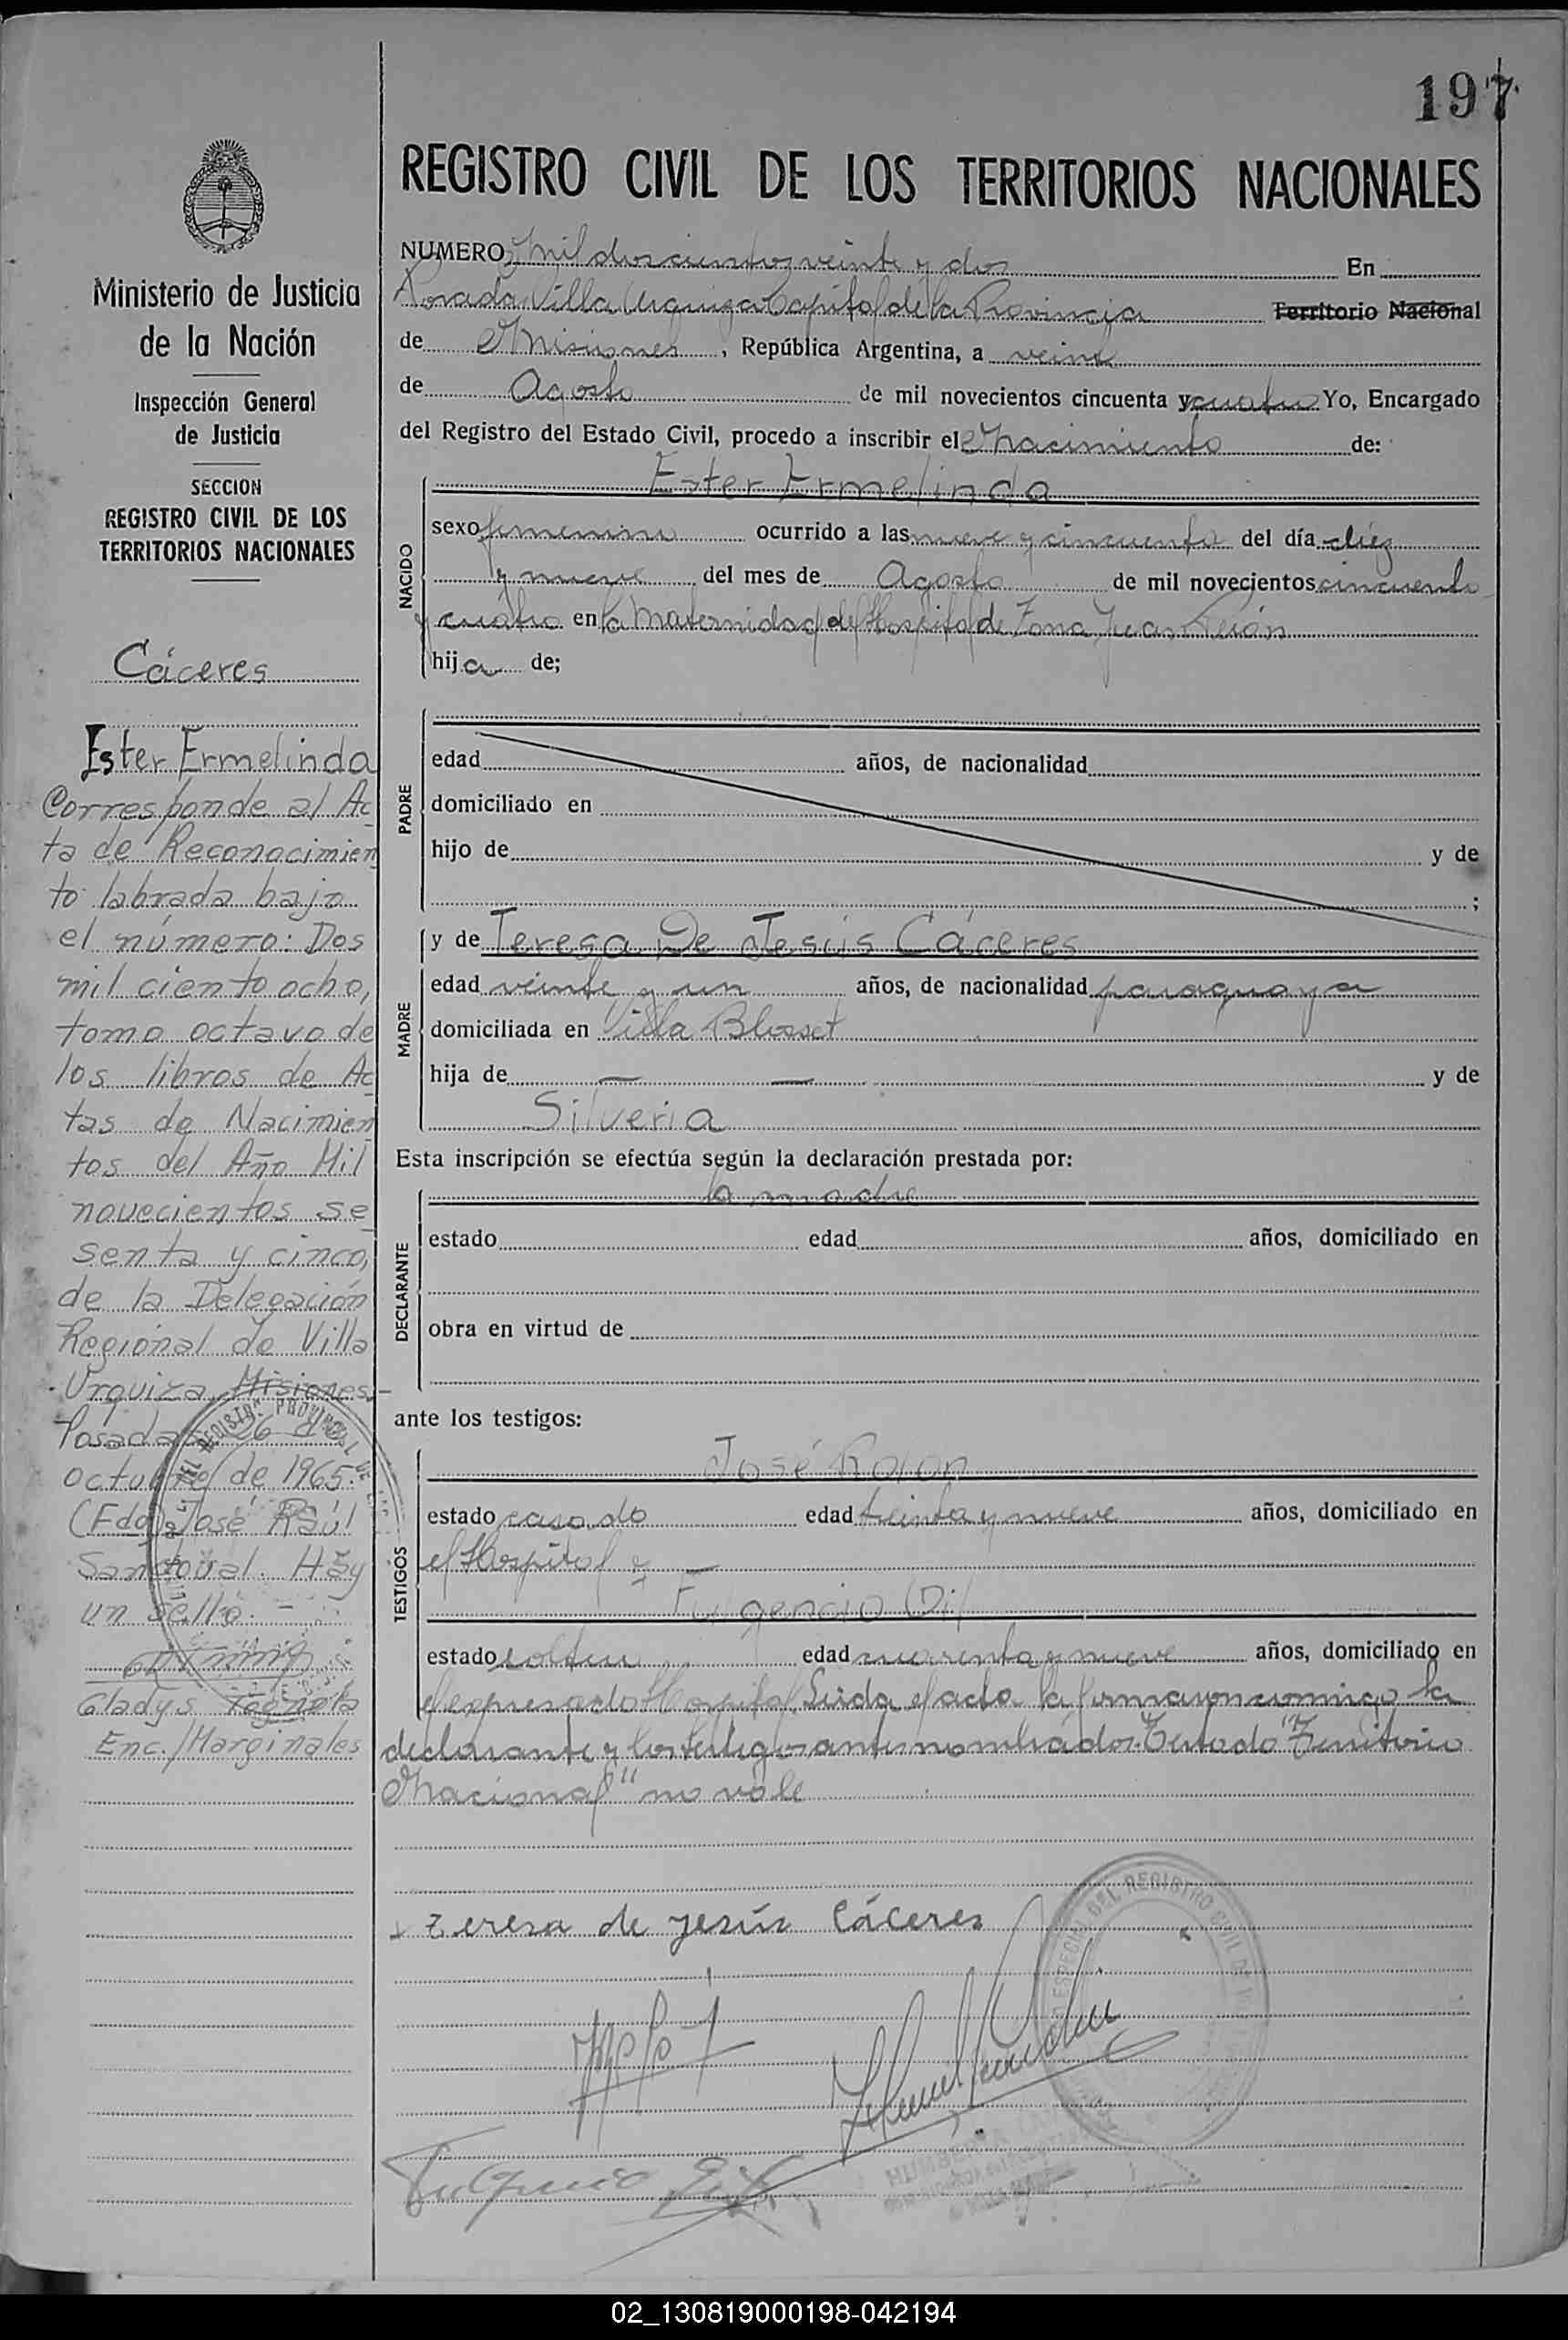 197
REGISTRO CIVIL DE LOS TERRITORIOS NACIONALES
NUMERO Mil doscientos veinte y dos En
Posadas Villa Urquiza Capital de la Provincia Territorio Nacional
de Misiones, República Argentina, a veinte
de Agosto de mil novecientos cincuenta y cuatro Yo, Encargado
del Registro del Estado Civil, procedo a inscribir el Nacimiento de:
NACIDO
Ester Ermelinda
sexo femenino ocurrido a las nueve y cincuenta del día diez
y nueve del mes de Agosto de mil novecientos cincuenta
y cuatro en la Maternidad del Hospital de Zona Juan Perón
hija de;
PADRE
edad años, de nacionalidad
domiciliado en
hijo de y de
;
MADRE
y de Teresa De Jesús Cáceres
edad veinte y un años, de nacionalidad paraguaya
domiciliada en Villa Blosset
hija de — — y de
Silveria
Esta inscripción se efectúa según la declaración prestada por:
DECLARANTE
la madre
estado edad años, domiciliado en
obra en virtud de
ante los testigos:
TESTIGOS
José Rolon
estado casado edad treinta y nueve años, domiciliado en
el Hospital y —
Fulgencio Dil
estado soltero edad cuarenta y nueve años, domiciliado en
el expresado Hospital. Leida el acta la firmaron conmigo la
declarante y los testigos antes nombrados. Testado "Territorio
Nacional" no vale
Teresa de Jesús Cáceres
Fulgencio
Ministerio de Justicia
de la Nación
Inspección General
de Justicia
SECCION
REGISTRO CIVIL DE LOS
TERRITORIOS NACIONALES
Cáceres
Ester Ermelinda
Corresponde al Ac
ta de Reconocimien
to labrada bajo
el número: Dos
mil ciento ocho,
tomo octavo de
los libros de Ac
tas de Nacimien
tos del Año Mil
novecientos se
senta y cinco,
de la Delegación
Regional de Villa
Urquiza, Misiones.-
Posadas 26 de
octubre de 1965.
(Fdo) José Raúl
Sandoval. Hay
un sello. -
Gladys
Enc./Marginales
02_130819000198-042194